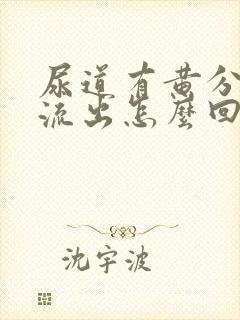 尿道有黄分
流出怎麽回
沈宇波